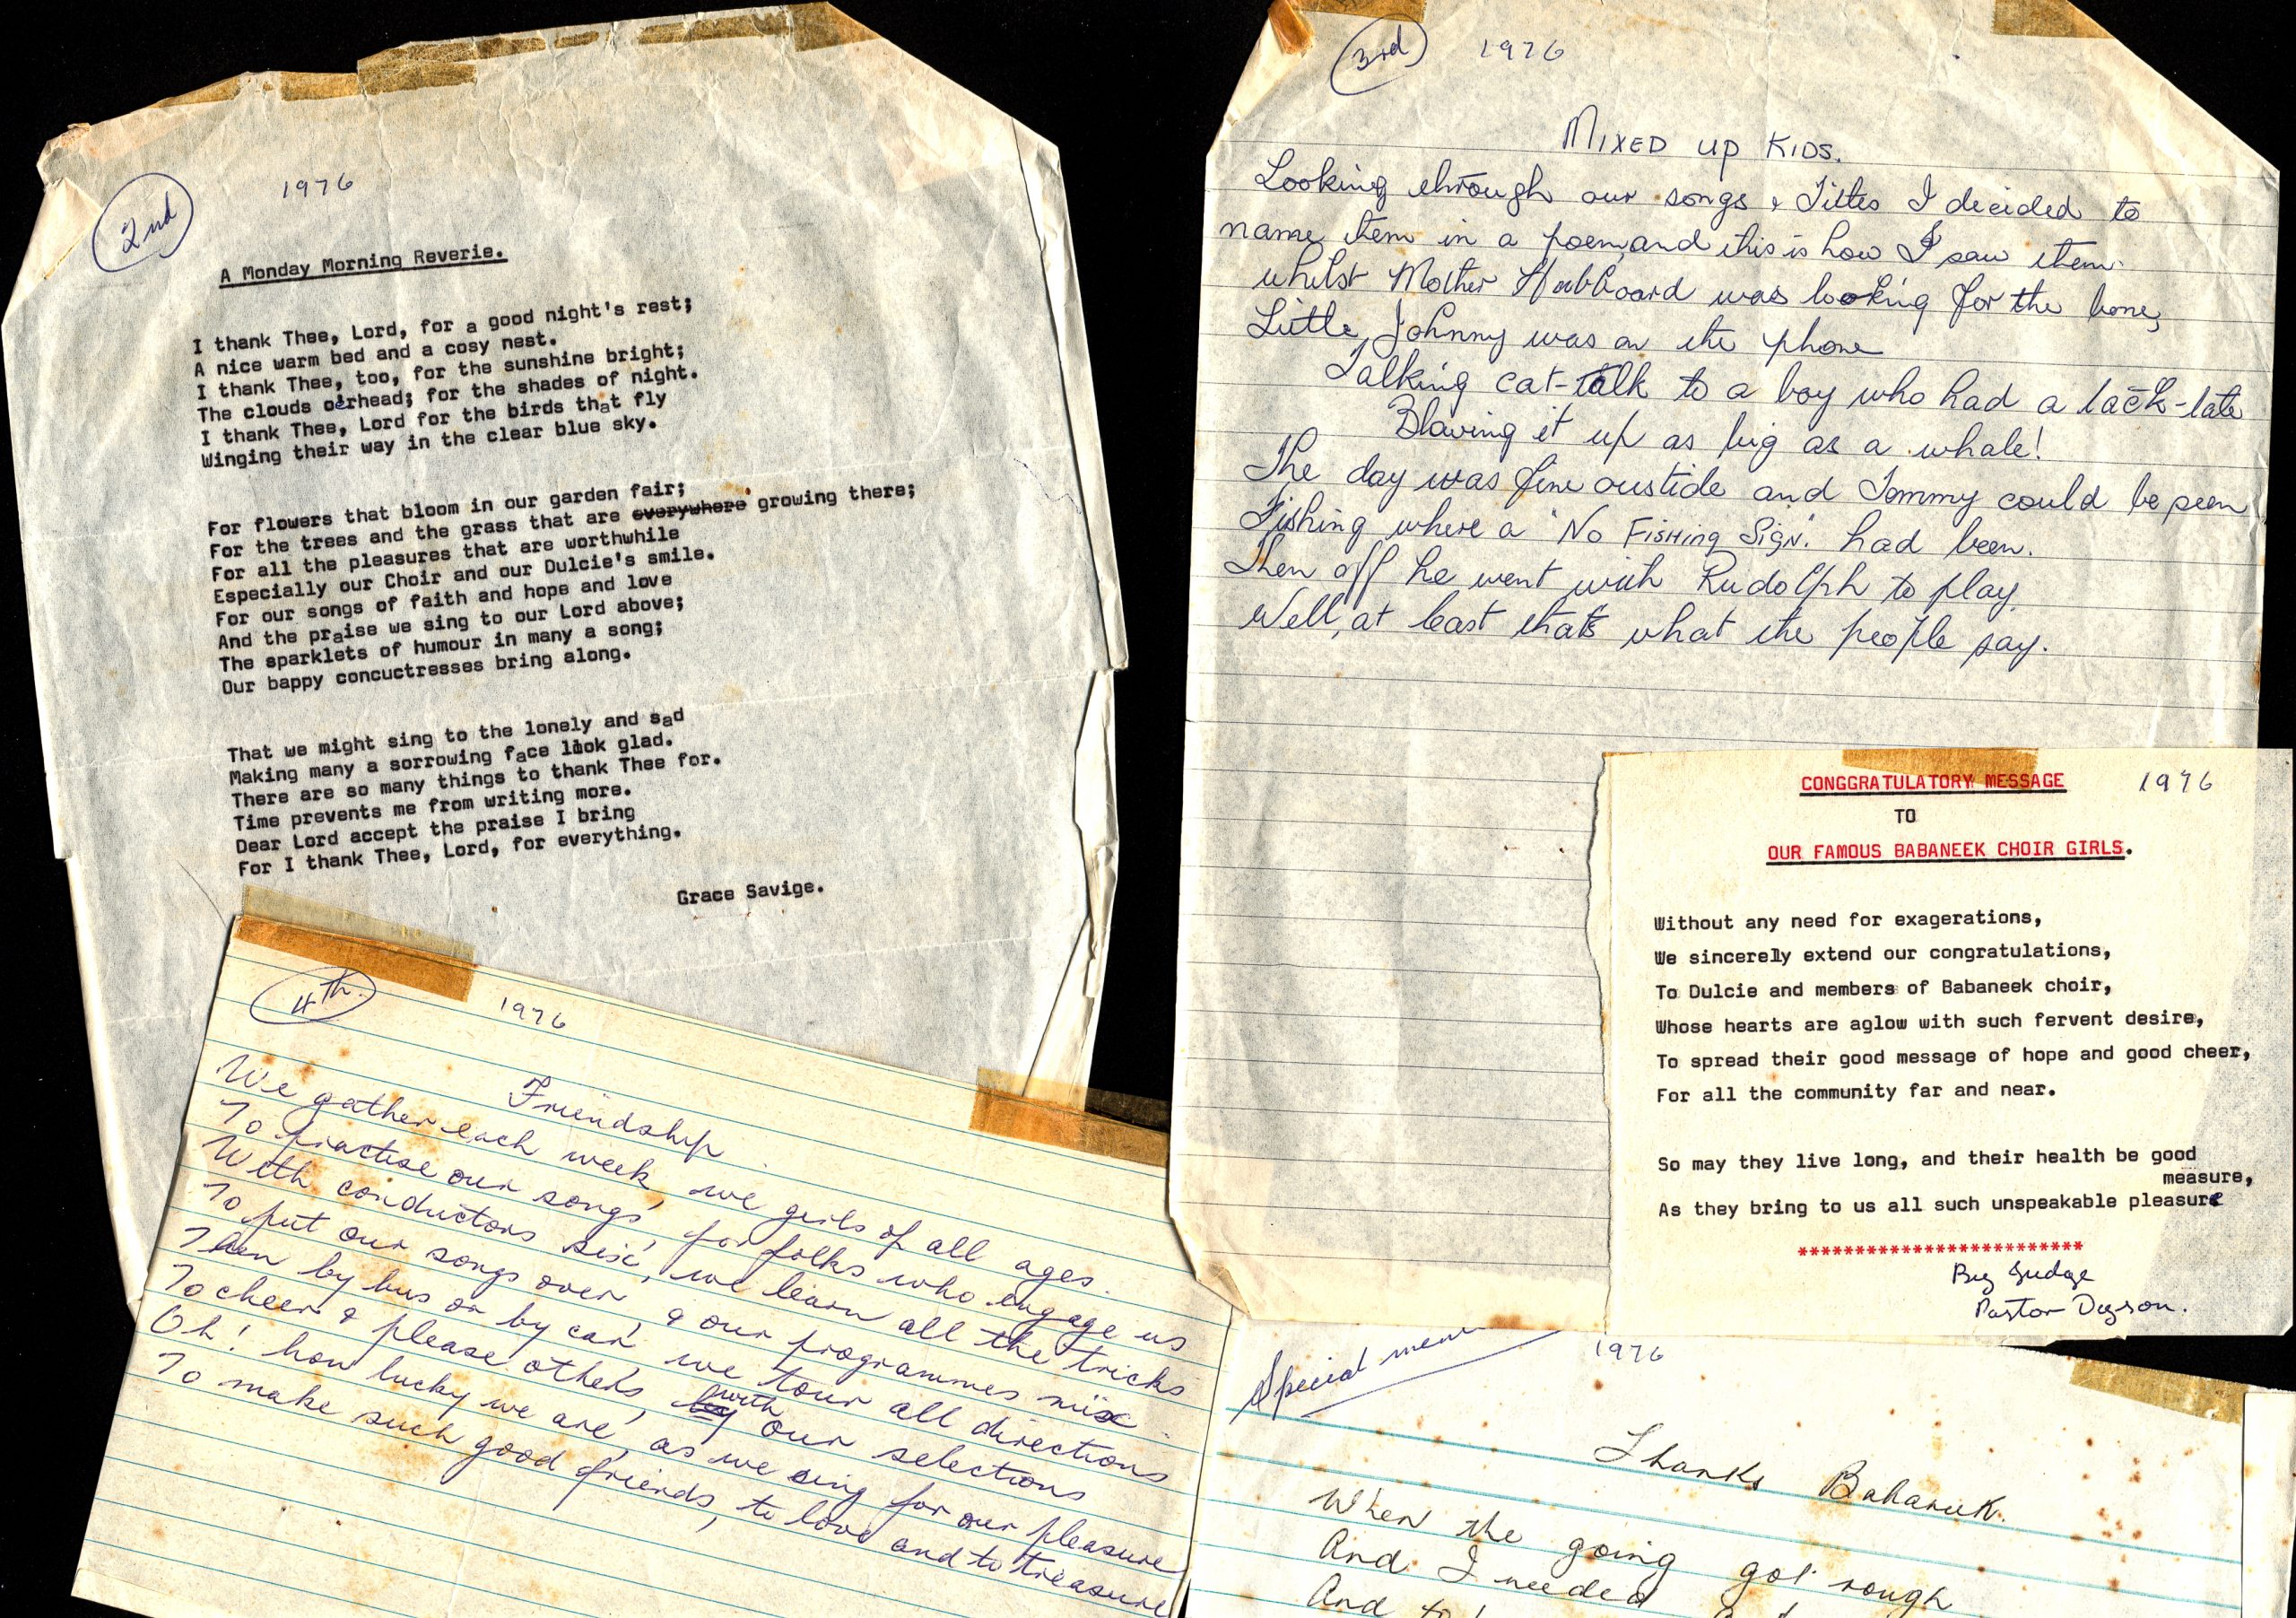 2nd
1976
A Monday Morning Reverie.
I thank Thee, Lord, for a good night's rest;
A nice warm bed and a cosy nest.
I thank Thee, too, for the sunshine bright;
The clouds o'erhead; for the shades of night.
I thank Thee, Lord for the birds that fly
Winging their way in the clear blue sky.
For flowers that bloom in our garden fair;
For the trees and the grass that are everywhere growing there;
For all the pleasures that are worthwhile
Especially our Choir and our Dulcie's smile.
For our songs of faith and hope and love
And the praise we sing to our Lord above;
The sparklets of humour in many a song;
Our bappy concuctresses bring along.
That we might sing to the lonely and sad
Making many a sorrowing face look glad.
There are so many things to thank Thee for.
Time prevents me from writing more.
Dear Lord accept the praise I bring
For I thank Thee, Lord, for everything.
Grace Savige.
4th
1976
Friendship
We gather each week, we girls of all ages.
To practise our songs, for folks who engage us
With conductors six, we learn all the tricks
To put our songs over, & our programmes mix
Then by bus or by car, we tour all directions
To cheer & please others, by with our selections
Oh! how lucky we are, as we sing for our pleasure
To make such good friends, to love and to treasure
3rd
1976
MIXED UP KIDS.
Looking through our songs & Titles I decided to
name them in a poem, and this is how I saw them.
Whilst Mother Hubboard was looking for the bone,
Little Johnny was on the phone
Talking cat-talk to a boy who had a tack-late
Blowing it up as big as a whale!
The day was fine oustide and Tommy could be seen
Fishing where a "No FISHING SIGN." had been.
Then off he went with Rudolph to play.
Well, at least that's what the people say.
CONGGRATULATORY MESSAGE
1976
TO
OUR FAMOUS BABANEEK CHOIR GIRLS.
Without any need for exagerations,
We sincerely extend our congratulations,
To Dulcie and members of Babaneek choir,
Whose hearts are aglow with such fervent desire,
To spread their good message of hope and good cheer,
For all the community far and near.
So may they live long, and their health be good
measure,
As they bring to us all such unspeakable pleasure
*************************
By Judge
Pastor Dyson.
Special
1976
Thanks Babaneek.
When the going got rough
And I needed
And